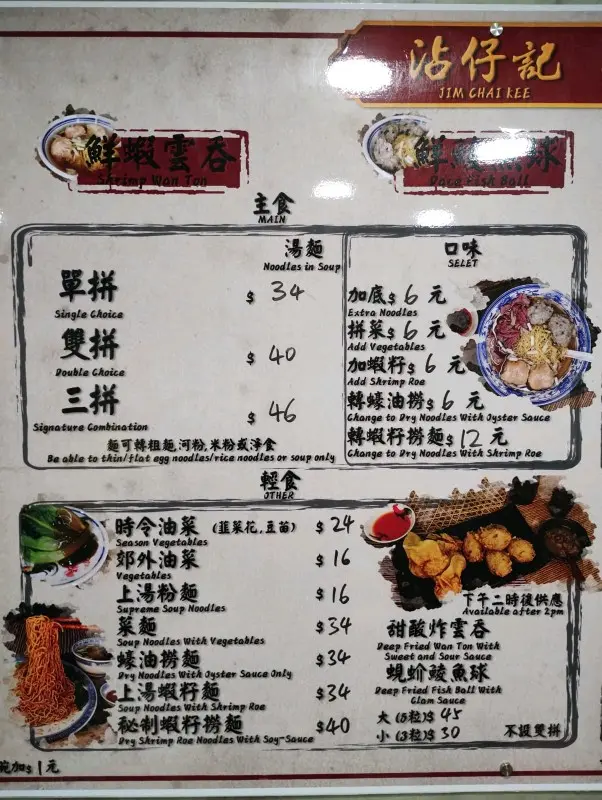 沾仔記
JIM CHAI KEE
鮮蝦雲吞
Shrimp Wan Ton
鮮鯪魚球
Dace Fish Ball
主食
MAIN
湯麵
Noodles in Soup
單拼 $ 34
Single Choice
雙拼 $ 40
Double Choice
三拼 $ 46
Signature Combination
麵可轉粗麵,河粉,米粉或淨食
Be able to thin/flat egg noodles/rice noodles or soup only
口味
SELET
加底$ 6 元
Extra Noodles
拼菜$ 6 元
Add Vegetables
加蝦籽$ 6 元
Add Shrimp Roe
轉蠔油撈$ 6 元
Change to Dry Noodles With Oyster Sauce
轉蝦籽撈麵$ 12 元
Change to Dry Noodles With Shrimp Roe
輕食
OTHER
時令油菜 (韮菜花,豆苗) $ 24
Season Vegetables
郊外油菜 $ 16
Vegetables
上湯粉麵 $ 16
Supreme Soup Noodles
菜麵 $ 34
Soup Noodles With Vegetables
蠔油撈麵 $ 34
Dry Noodles With Oyster Sauce Only
上湯蝦籽麵 $ 34
Soup Noodles With Shrimp Roe
秘制蝦籽撈麵 $ 40
Dry Shrimp Roe Noodles With Soy-Sauce
下午二時後供應
Available after 2pm
甜酸炸雲吞
Deep Fried Wan Ton With
Sweet and Sour Sauce
蜆蚧鯪魚球
Deep Fried Fish Ball With
Clam Sauce
大 (5粒)$ 45
小 (3粒)$ 30
不設雙拼
碗加$ 1 元